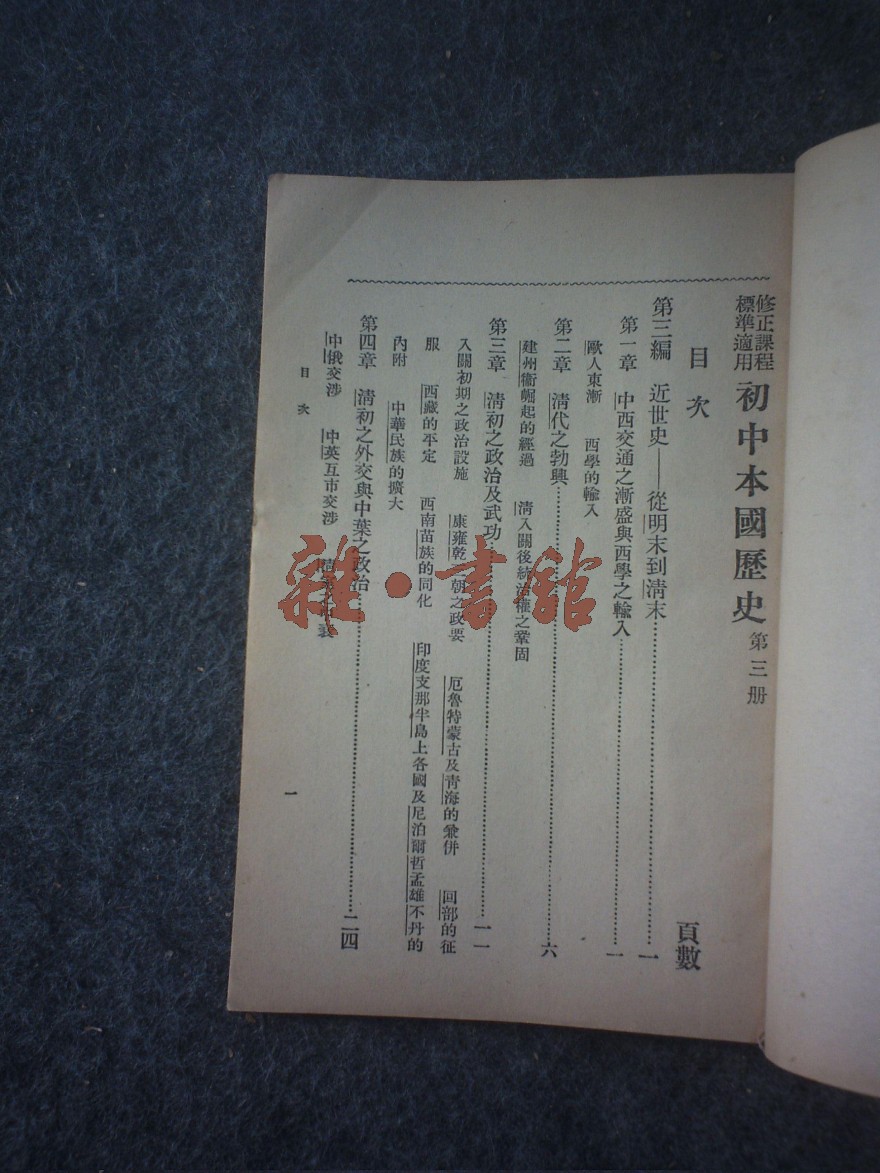 修正課程
標準適用
初中本國歷史 第三册
目次
頁數
第三編 近世史——從明末到清末……一
第一章 中西交通之漸盛與西學之輸入……一
歐人東漸 西學的輸入
第二章 清代之勃興……六
建州衞崛起的經過 清入關後統治權之鞏固
第三章 清初之政治及武功……一一
入關初期之政治設施 康雍乾三朝之政要 厄魯特蒙古及青海的兼併 回部的征
服 西藏的平定 西南苗族的同化 印度支那半島上各國及尼泊爾哲孟雄不丹的
內附 中華民族的擴大
第四章 清初之外交與中葉之政治……二四
中俄交涉 中英互市交涉
目次
一
雜·書館